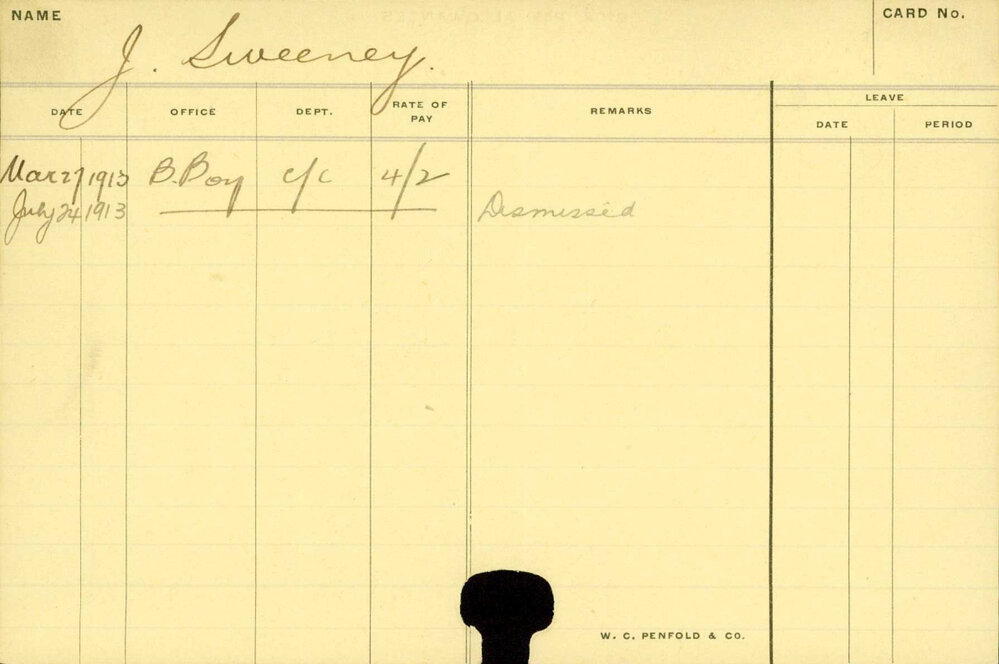 NAME
CARD No.
J. Sweeney.
DATE OFFICE DEPT. RATE OF PAY REMARKS LEAVE
DATE PERIOD
Mar 27 1913 B.Boy c/c 4/2
July 24 1913 Dismissed
W. C. PENFOLD & CO.